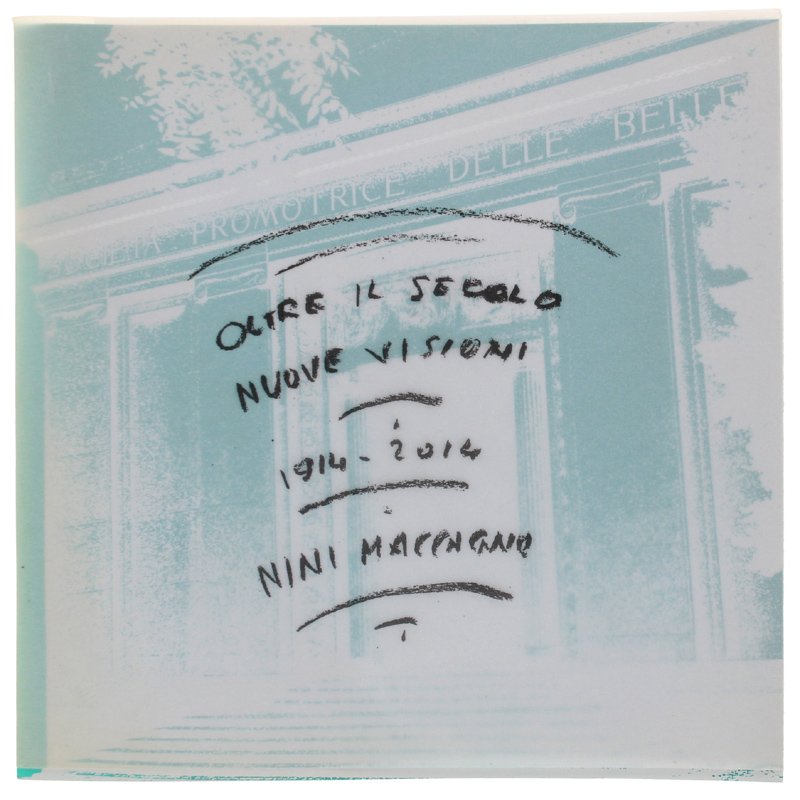 SOCIETÀ PROMOTRICE DELLE BELLE
OLTRE IL SECOLO
NUOVE VISIONI
1914-2014
NINI MACCAGNO